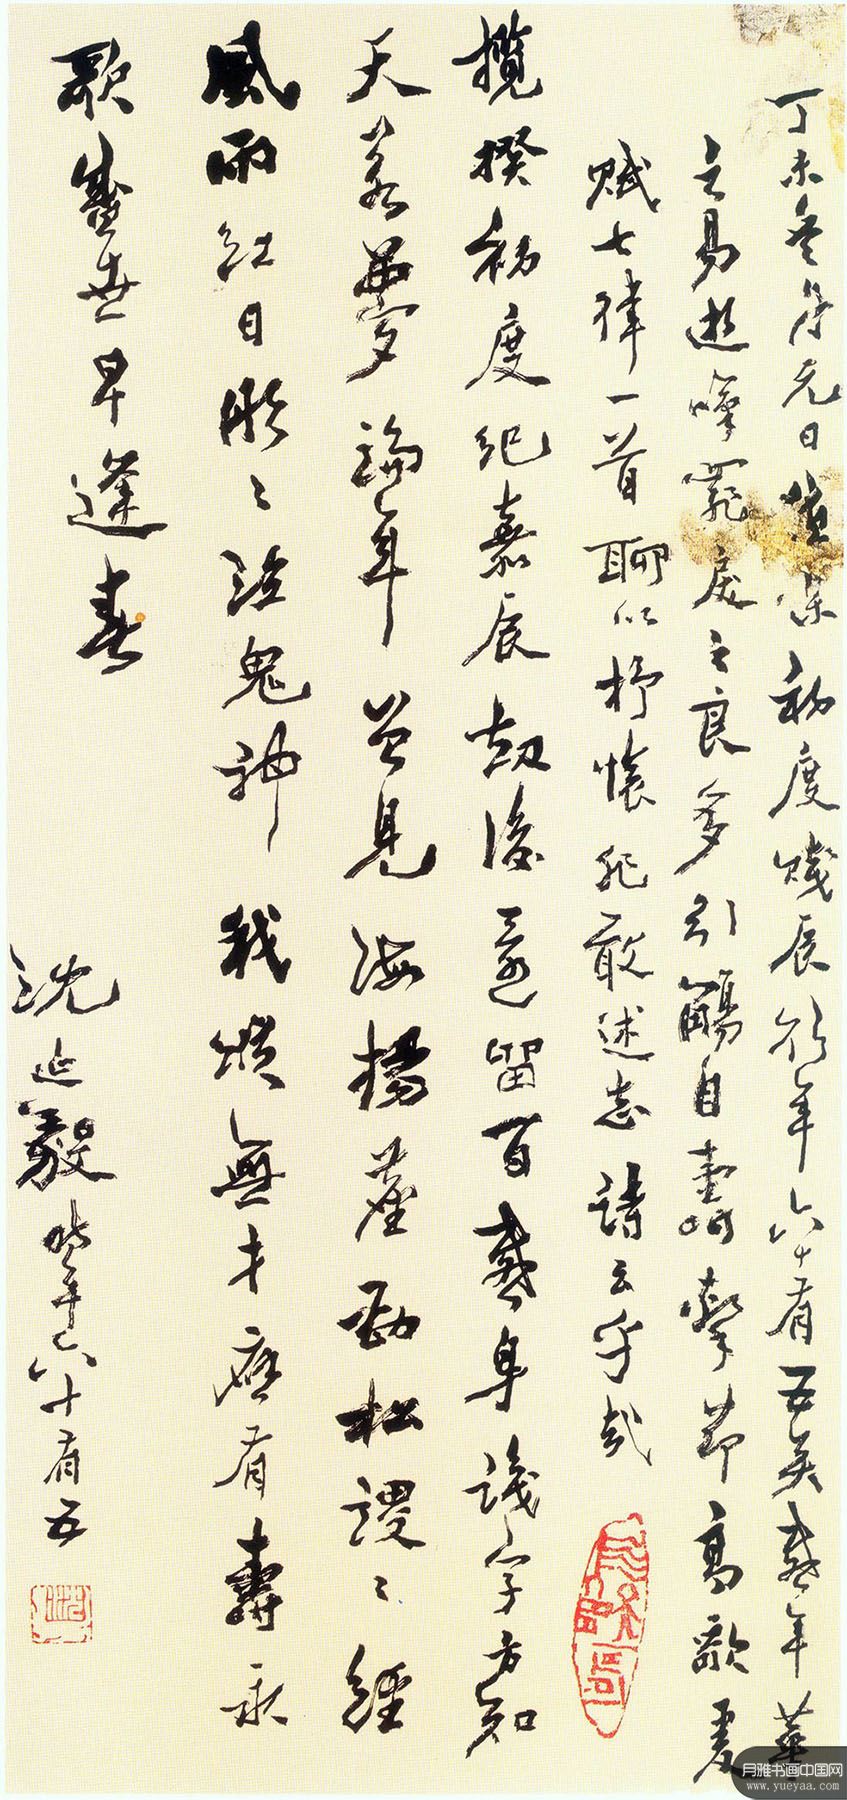 丁未冬月元日值某初度賤辰行年六十有五矣慨年華
之易逝嗟罷戾之良多引觴自壽擊節高歌爰
賦七律一首聊以抒懷非敢述志詩云乎哉
攬揆初度紀嘉辰劫後還留百感身識字方知
天若夢論年曾見海揚塵勁松謖謖經
風雨紅日彤彤泣鬼神我愧無才應有壽永
歌盛世早逢春
沈延毅時年六十有五
月雅书画中国网
www.yueyaa.com